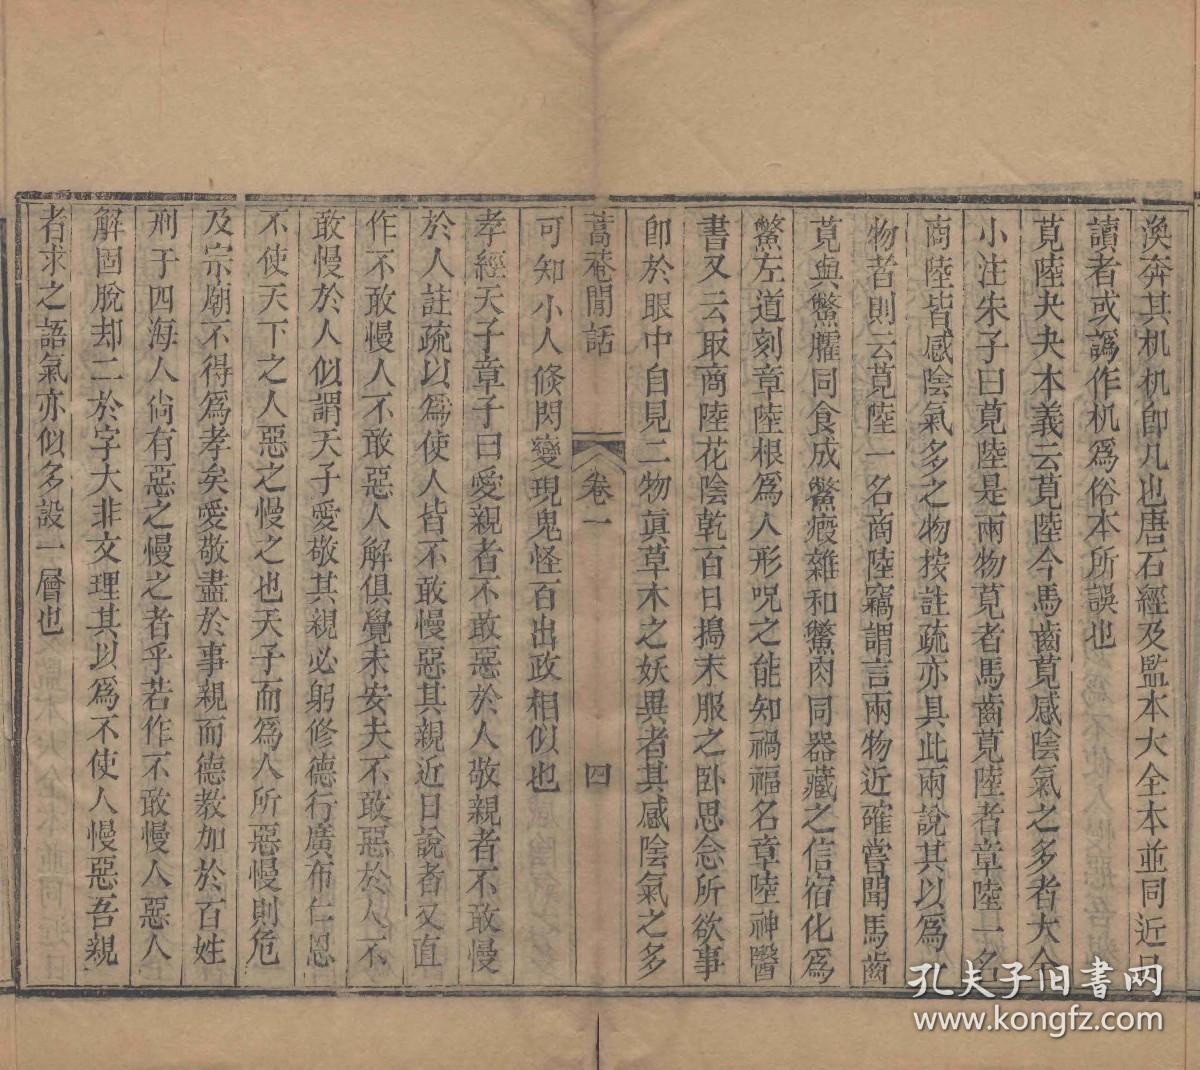 渙奔其机机卽几也唐石經及監本大全本並同近日
讀者或譌作机爲俗本所誤也
莧陸夬夬本義云莧陸今馬齒莧感陰氣之多者大全
小注朱子曰莧陸是兩物莧者馬齒莧陸者章陸一名
商陸皆感陰氣多之物按註疏亦具此兩說其以爲一
物者則云莧陸一名商陸竊謂言兩物近確嘗聞馬齒
莧與鱉臛同食成鱉瘕雜和鱉肉同器藏之信宿化爲
鱉左道刻章陸根爲人形呪之能知禍福名章陸神醫
書又云取商陸花陰乾百日搗末服之卧思念所欲事
卽於眼中自見二物眞草木之妖異者其感陰氣之多
蒿菴閒話
卷一
四
可知小人倏閃變現鬼怪百出政相似也
孝經天子章子曰愛親者不敢惡於人敬親者不敢慢
於人註疏以爲使人皆不敢慢惡其親近日說者又直
作不敢慢人不敢惡人解俱覺未安夫不敢惡於人不
敢慢於人似謂天子愛敬其親必躬修德行廣布仁恩
不使天下之人惡之慢之也天子而爲人所惡慢則危
及宗廟不得爲孝矣愛敬盡於事親而德教加於百姓
刑于四海人尙有惡之慢之者乎若作不敢慢人惡人
解固脫却二於字大非文理其以爲不使人慢惡吾親
者求之語氣亦似多設一層也
孔夫子旧书网
www.kongfz.com